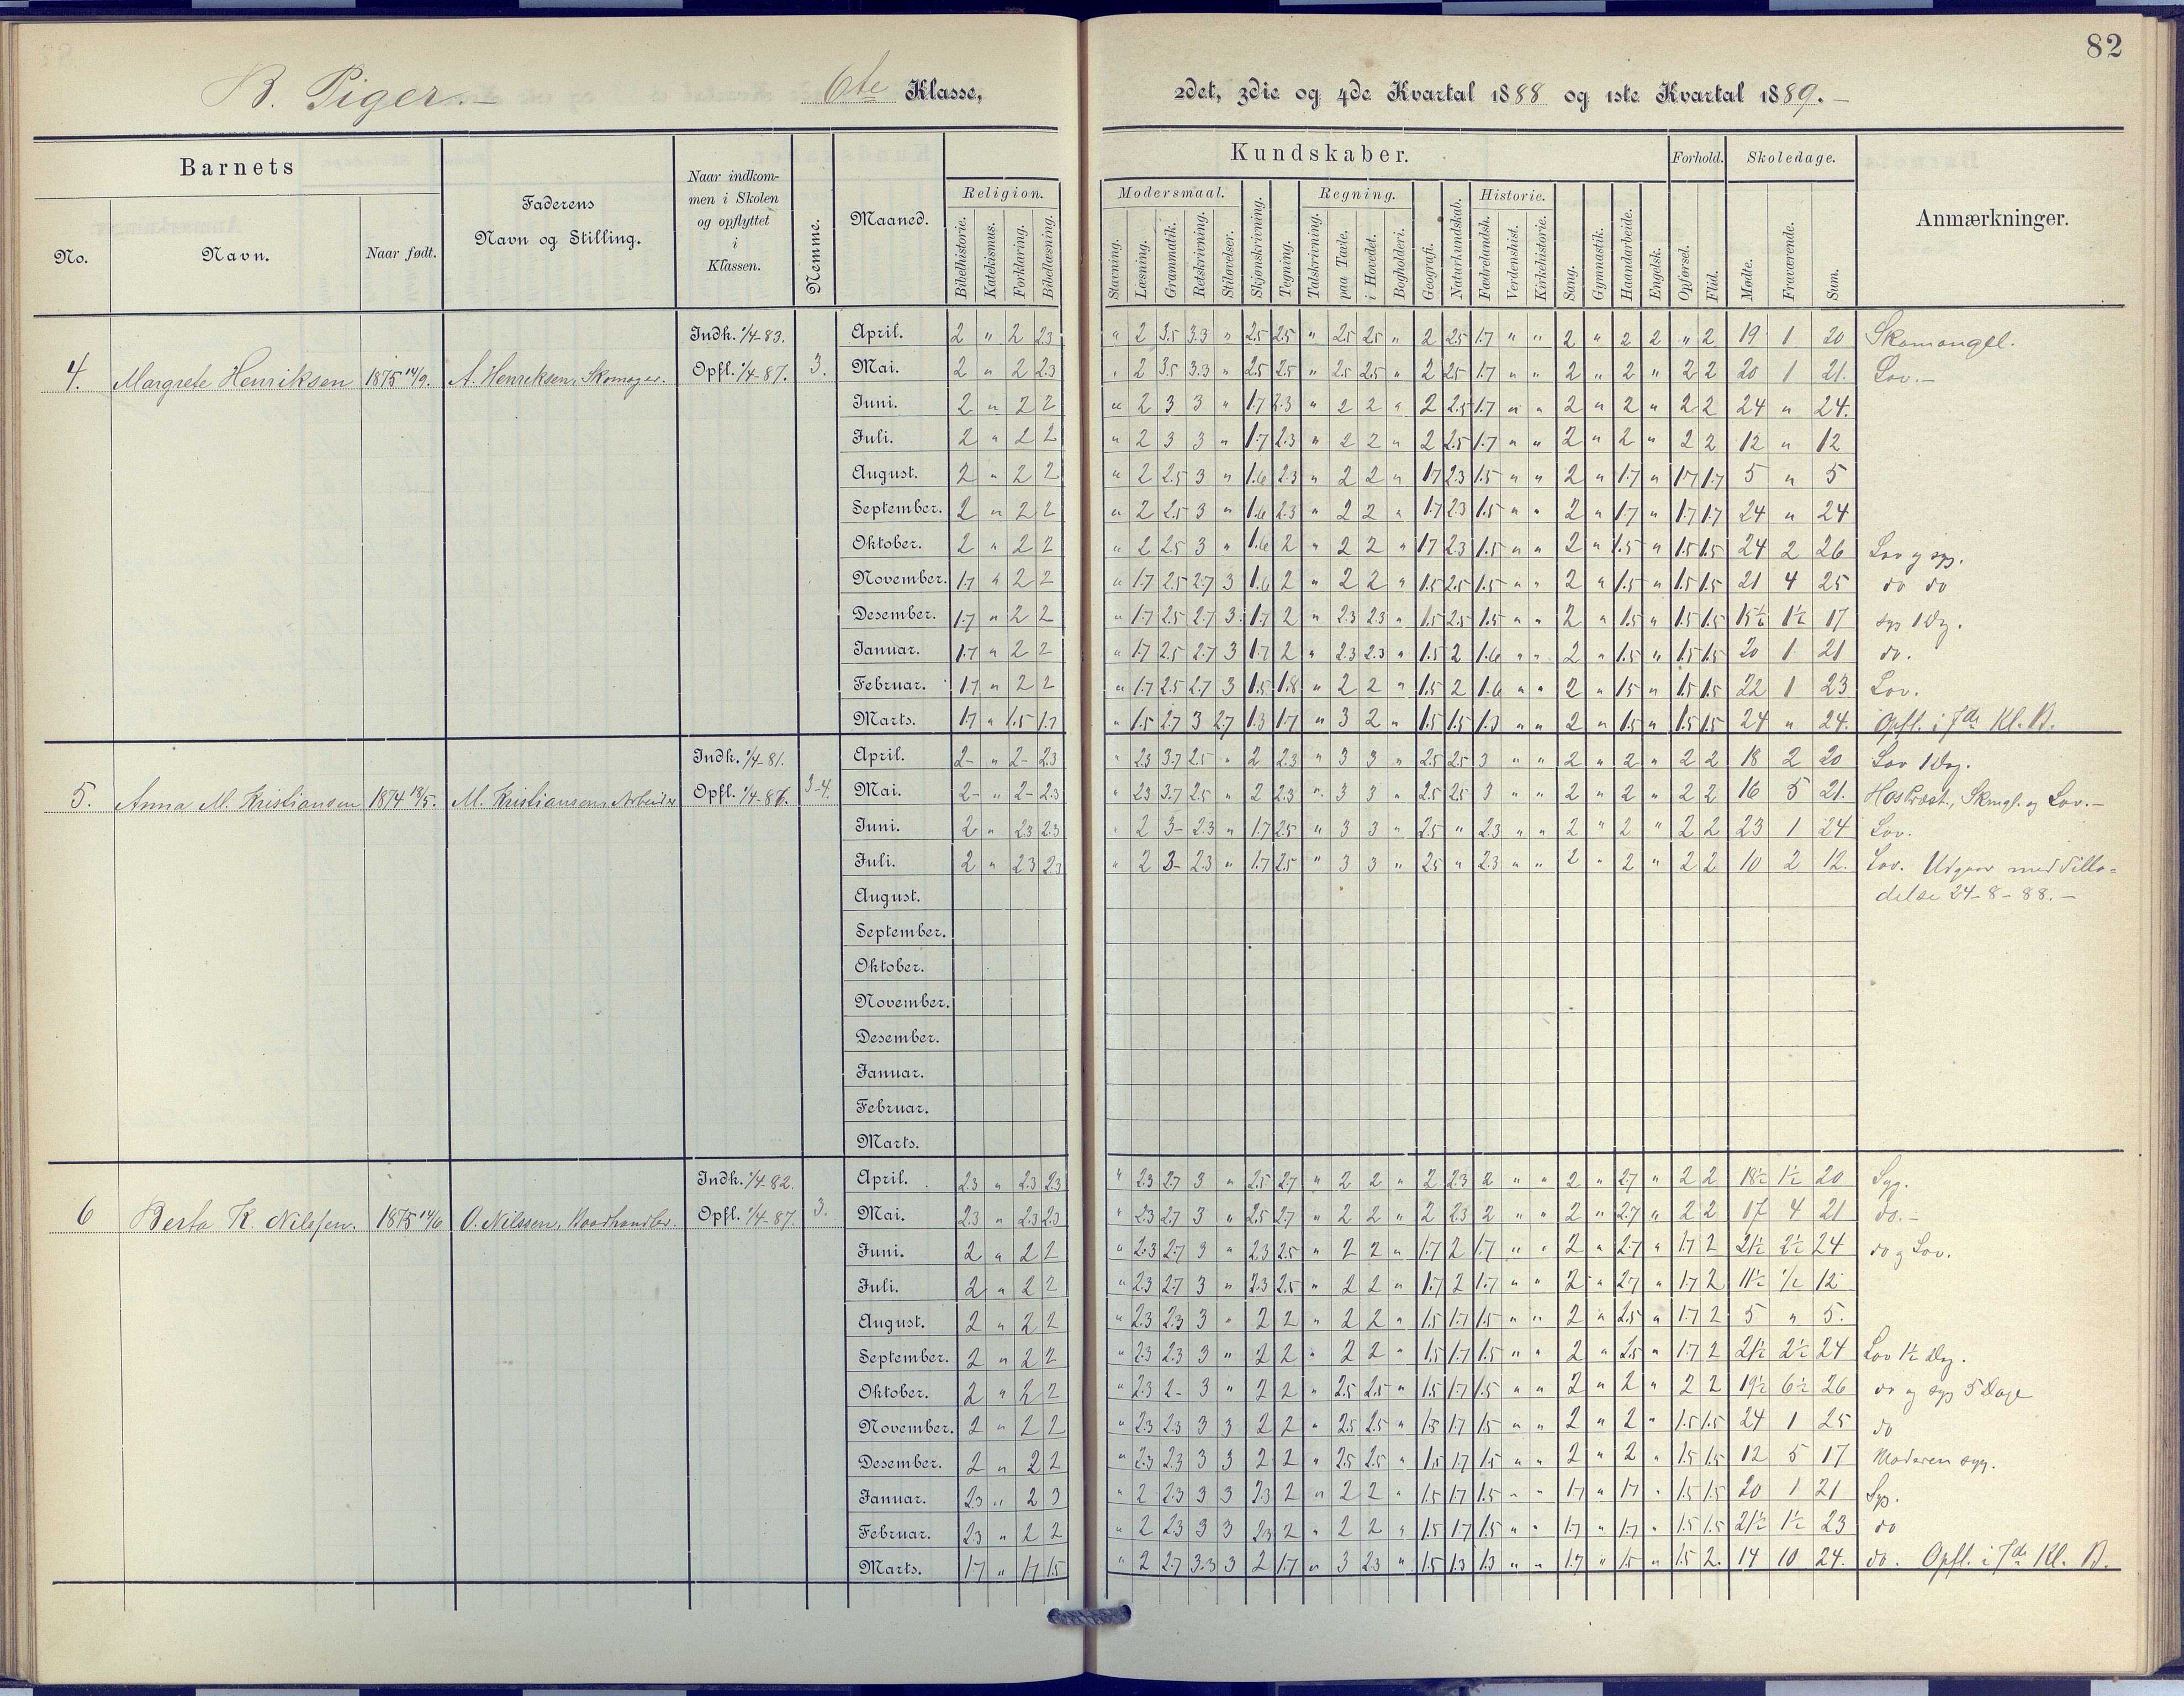 82
B. Piger.
6te Klasse,
2det, 3die og 4de Kvartal 1888 og 1ste Kvartal 1889.
Barnets
No.
Navn.
Naar født.
Faderens
Navn og Stilling.
Naar indkom-
men i Skolen
og opflyttet
i
Klassen.
Nemme.
Maaned.
Kundskaber.
Religion.
Bibelhistorie. Katekismus. Forklaring. Bibellæsning.
Modersmaal.
Stavning. Læsning. Grammatik. Retskrivning. Stiløvelser.
Skjønskrivning. Tegning.
Regning.
Talskrivning. paa Tavle. i Hovedet. Bogholderi.
Geografi. Naturkundskab.
Historie.
Fædrelandsh. Verdenshist. Kirkehistorie.
Sang. Gymnastik. Haandarbeide. Engelsk.
Forhold.
Opførsel. Flid.
Skoledage.
Mødte. Fraværende. Sum.
Anmærkninger.
4. Margrete Henriksen 1875 14/9. A. Henriksen, Skomager. Indk. 1/4-83. Opfl. 1/4-87. 3.
April. 2 " 2 2.3 " 2 3.5 3.3 " 2.5 2.5 " 2.5 2.5 " 2 2.5 1.7 " " 2 " 2 2 " 2 19 1 20 Skomangel.
Mai. 2 " 2 2.3 " 2 3.5 3.3 " 2.5 2.5 " 2.5 2.5 " 2 2.5 1.7 " " 2 " 2 " 2 2 20 1 21. Lov.-
Juni. 2 " 2 2 " 2 3 3 " 1.7 2.3 " 2 2 " 2 2.5 1.7 " " 2 " 2 " 2 2 24 " 24.
Juli. 2 " 2 2 " 2 3 3 " 1.7 2.3 " 2 2 " 2 2.5 1.7 " " 2 " 2 " 2 2 12 " 12
August. 2 " 2 2 " 2 2.5 3 " 1.6 2.3 " 2 2 " 1.7 2.3 1.5 " " 2 " 1.7 " 1.7 1.7 5 " 5
September. 2 " 2 2 " 2 2.5 3 " 1.6 2.3 " 2 2 " 1.7 2.3 1.5 " " 2 " 1.7 " 1.7 1.7 24 " 24
Oktober. 2 " 2 2 " 2 2.5 3 " 1.6 2 " 2 2 " 1.7 2.3 1.5 " " 2 " 1.5 " 1.5 1.5 24 2 26 Lov og syg.
November. 1.7 " 2 2 " 1.7 2.5 2.7 3 1.6 2 " 2 2 " 1.5 2.5 1.5 " " 2 " 1.5 " 1.5 1.5 21 4 25 do do
Desember. 1.7 " 2 2 " 1.7 2.5 2.7 3. 1.7 2 " 2.3 2.3 " 1.5 2.5 1.5 " " 2 " 1.5 " 1.5 1.5 15½ 1½ 17 syg 1 Dg.
Januar. 1.7 " 2 2 " 1.7 2.5 2.7 3 1.7 2 " 2.3 2.3 " 1.5 2 1.6 " " 2 " 1.5 " 1.5 1.5 20 1 21 do.
Februar. 1.7 " 2 2 " 1.7 2.5 2.7 3 1.5 1.8 " 2 2 " 1.5 2 1.6 " " 2 " 1.5 " 1.5 1.5 22 1 23 Lov.
Marts. 1.7 " 1.5 1.7 " 1.5 2.7 3 2.7 1.3 1.7 " 3 2 " 1.5 1.5 1.3 " " 2 " 1.5 " 1.5 1.5 24 " 24. Opfl. i 7de Kl. B.
5. Anna M. Kristiansen 1874 18/5. M. Kristiansen, Arbeider Indk. 1/4-81. Opfl. 1/4-87. 3-4.
April. 2- " 2- 2.3 " 2.3 3.7 2.5 " 2 2.3 " 3 3 " 2.5 2.5 3 " " 2 " 2 " 2 2 18 2 20 Lov 1 Dag.
Mai. 2- " 2- 2.3 " 2.3 3.7 2.5 " 2 2.3 " 3 3 " 2.5 2.5 3 " " 2 " 2 " 2 2 16 5 21. Hos Præst., Skmgl. og Lov.-
Juni. 2 " 2.3 2.3 " 2 3- 2.3 " 1.7 2.5 " 3 3 " 2.5 " 2.3 " " 2 " 2 " 2 2 23 1 24 Lov.
Juli. 2 " 2.3 2.3 " 2 3- 2.3 " 1.7 2.5 " 3 3 " 2.5 " 2.3 " " 2 " 2 " 2 2 10 2 12. Lov. Udgaar med Tilla-
August. delse 24-8-88.-
September.
Oktober.
November.
Desember.
Januar.
Februar.
Marts.
6 Berta K. Nilssen. 1875 14/6 O. Nilssen, Indk. 1/4-82. Opfl. 1/4-87. 3.
April. 2.3 " 2.3 2.3 " 2.3 2.7 3 " 2.5 2.7 " 2 2 " 2 2.3 2 " " 2 " 2.7 " 2 2 18½ 1½ 20 Syg.
Mai. 2.3 " 2.3 2.3 " 2.3 2.7 3 " 2.5 2.7 " 2 2 " 2 2.3 2 " " 2 " 2.7 " 2 2 17 4 21 do.-
Juni. 2 " 2 2 " 2.3 2.7 3 " 2.3 2.5 " 2 2 " 1.7 2 1.7 " " 2 " 2.7 " 1.7 2 21½ 2½ 24 do og Lov.
Juli. 2 " 2 2 " 2.3 2.7 3 " 2.3 2.5 " 2 2 " 1.7 2 1.7 " " 2 " 2.7 " 1.7 2 11½ 1/2 12
August. 2 " 2 2 " 2.3 2.3 3 " 2 2 " 2 2 " 1.5 1.7 1.5 " " 2 " 2.5 " 1.7 2 5 " 5.
September. 2 " 2 2 " 2.3 2.3 3 " 2 2 " 2 2 " 1.5 1.7 1.5 " " 2 " 2.5 " 1.7 2 21½ 2½ 24 Lov 1½ Dg.
Oktober. 2 " 2 2 " 2.3 2- 3 " 2 2 " 2.5 2.5 " 1.5 1.7 1.5 " " 2 " 2 " 2 2 19½ 6½ 26 do og syg 5 Dage
November. 2 " 2 2 " 2.3 2.3 3 3 2 2 " 2.5 2.5 " 1.5 1.7 1.5 " " 2 " 2 " 1.5 1.5 24 1 25 do
Desember. 2 " 2 2 " 2.3 2.3 3 3 2 2 " 2.5 2.5 " 1.5 1.7 1.5 " " 2 " 2 " 1.5 1.5 12 5 17 Moderen syg.
Januar. 2.3 " 2 3 " 2 2.3 3 3 2.3 2 " 2 2 " 1.5 1.7 1.5 " " 1.7 " 1.7 " 1.5 1.5 20 1 21 Syg.
Februar. 2.3 " 2 2 " 2 2.3 3 3 2.3 2 " 2 2 " 1.5 1.7 1.5 " " 1.7 " 1.7 " 1.5 1.5 21½ 1½ 23 do
Marts. 1.7 " 1.7 1.5 " 2 2.7 3.3 3 2 1.7 " 3 2.3 " 1.5 1.3 1.3 " " 1.7 " 1.5 " 1.5 2. 14 10 24. do. Opfl. i 7de Kl. B.